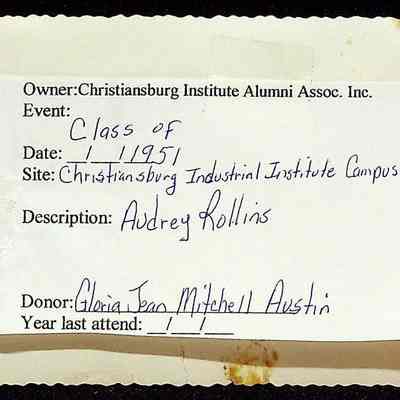 Owner:Christiansburg Institute Alumni Assoc. Inc.
Event:
Class of
Date: __/__/1951
Site: Christiansburg Industrial Institute Campus
Description: Audrey Rollins
Donor: Gloria Jean Mitchell Austin
Year last attend: __/__/__